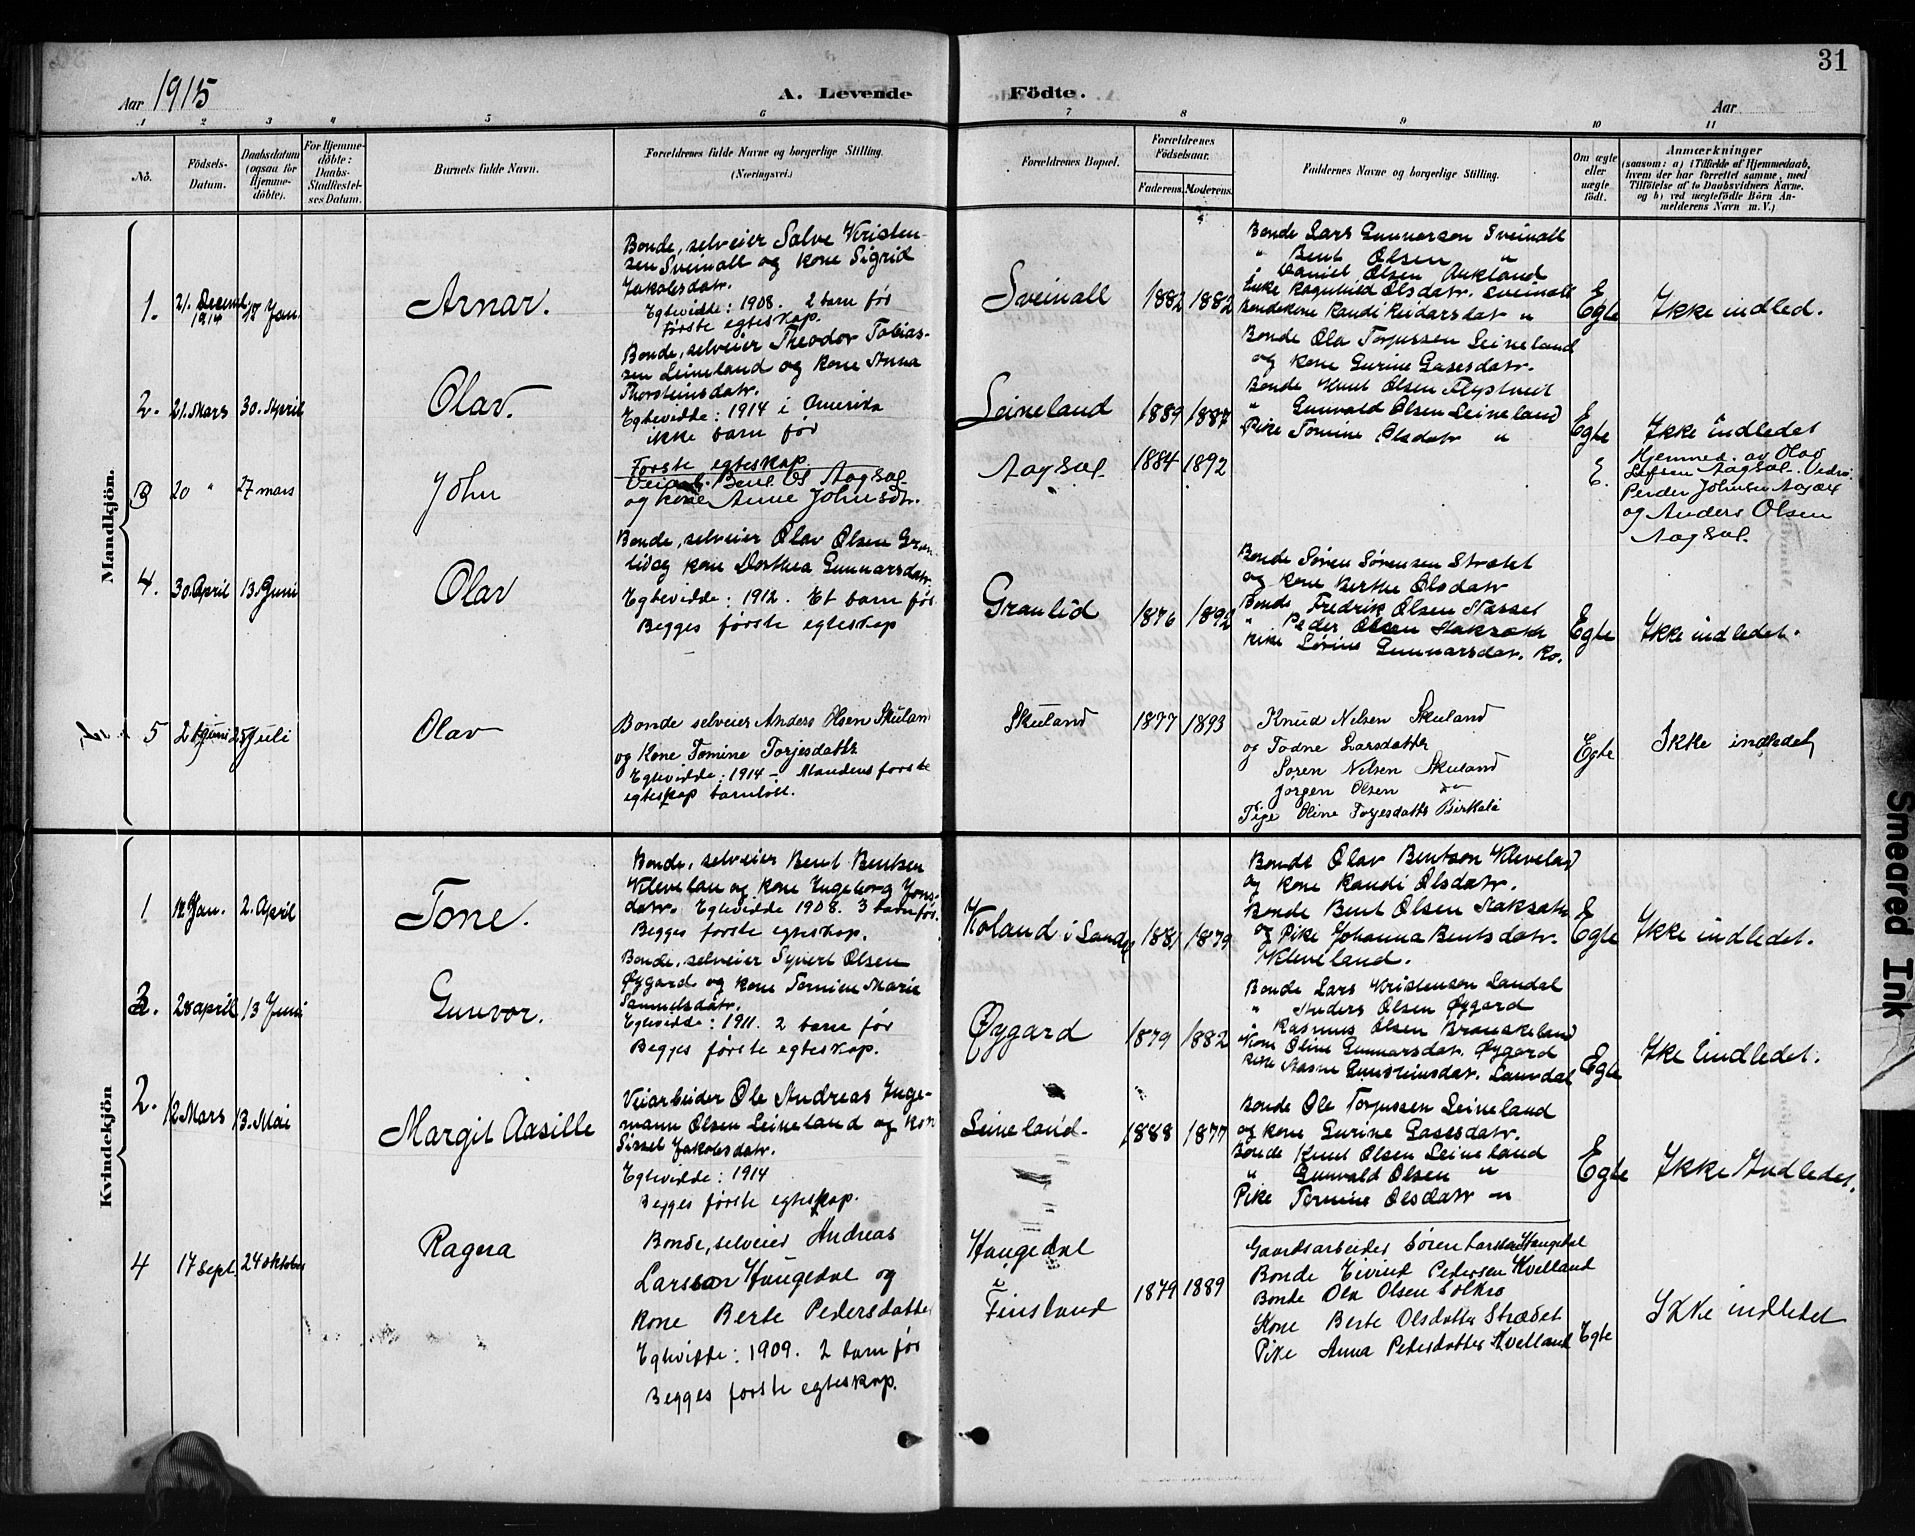 31
Aar 1915
A. Levende Födte.
Aar
1 2 3 4 5 6 7 8 9 10 11
No.
Födsels-
Datum.
Daabsdatum
(ogsaa for
Hjemme-
döbte).
For Hjemme-
döbte:
Daabs-
Stadfæstel-
ses Datum.
Barnets fulde Navn.
Forældrenes fulde Navne og borgerlige Stilling.
(Næringsvei.)
Forældrenes Bopæl.
Forældrenes
Födselsaar.
Faderens.
Moderens.
Faddernes Navne og borgerlige Stilling.
Om ægte
eller
uægte
födt.
Anmærkninger
(saasom: a) i Tilfælde af Hjemmedaab,
hvem der har forrettet samme, med
Tilföielse af to Daabsvidners Navne,
og b) ved uægtefödte Börn An-
melderens Navn m. V.)
Mandkjön.
1.
21. Decemb. 1914
17 Jan.
Arnar.
Bonde, selveier Salve Kristen-
sen Sveinall og kone Sigrid
Jakobsdatr.
Egtevidde: 1908. 2 barn før
første egteskap.
Sveinall
1882
1882
Bonde Lars Gunnarson Sveinall
" Bent Olsen "
" Daniel Olsen Aukland
Enke Ragnhild Olsdatr. Sveinall
Bondekone Randi Reidarsdat "
Egte
Ikke indled.
2.
21. Mars
30. April
Olav.
Bonde, selveier Theodor Tobias-
sen Leineland og kone Anna
Thorsteinsdatr.
Egtevidde: 1914 i Amerika
ikke barn før
Første egteskap.
Leineland
1889
1887
Bonde Ola Torjussen Leineland
og kone Gurine Gasesdatr.
Bonde Knut Olsen Flystveit
" Gunvald Olsen Leineland
Pike Tomine Olsdatr "
Egte
Ikke indledet
3
20 "
27 mars
John
Veiarb. Bent Ol Aagsal
og kone Anne Johnsdtr.
Aagsal
1884
1892
E.
Hjemmed. av Olav
Aagsal. Vedn:
Peder Johnsen
og Anders Olsen
Aagsal.
4.
30. April
13 Juni
Olav
Bonde, selveier Olav Olsen Gran-
lid og kone Dorthea Gunnarsdatr.
Egtevidde: 1912. Et barn før
Begges første egteskap
Granlid
1876
1892
Bonde Søren Sørensen Strædet
og kone Berthe Olsdatr
Bonde Fredrik Olsen Næsset
" Peder Olsen Haksæth
Pike Sørine Gunnarsdatr.
Egte
Ikke indledet.
5
2 Juni
25 Juli
Olav
Bonde selveier Anders Olsen Skuland
og Kone Tomine Torjesdatter
Egtevidde: 1914 – Mandens første
egteskap barnløst.
Skuland
1877
1893
Knud Nelsen Skuland
og Todne Larsdatter
Søren Nelsen Skuland
Jørgen Olsen do
Pige Oline Torjesdatter Birkeli
Egte
Ikke indledet
Kvindekjön
1
12 Jan.
2. April
Tone.
Bonde, selveier Bent Bentsen
Klevelan og kone Ingeborg Jons-
datr. Egtevidde 1908. 3 barn før.
Begges første egteskap.
Koland i Laudal
1881
1879
Bonde Olav Bentson Kleveland
og kone Randi Olsdatr.
Bonde Bent Olsen Haksæth
og Pike Johanna Bentsdatr.
Kleveland.
Egte
Ikke indledet.
3.
28 april
13 Juni
Gunvor.
Bonde, selveier Syvert Olsen
Øygard og kone Tomine Marie
Samuelsdatr.
Egtevidde: 1911. 2 barn før
Begges første egteskap.
Øygard
1879
1882
Bonde Lars Kristenson Laudal
" Anders Olsen Øygard
" Rasmus Olsen Brauskeland
Kone Oline Gunnarsdatr. Øygard
Pike Aasne Gunsteinsdatr. Laudal
Egte
Ike indledet.
2.
12 Mars
13. Mai
Margit Aasille
Veiarbeider Ole Andreas Inge-
mann Olsen Leineland og kon
Sissel Jakobsdatr.
Egtevidde: 1914
Begges første egteskap.
Leineland.
1888
1877
Bonde Ole Torjussen Leineland
og kone Gurine Gasesdatr.
Bonde Knut Olsen Leineland
" Gunvald Olsen "
Pike Tomine Olsdatr "
Egte
Ikke Indledet.
4
17 sept.
24 oktober
Ragna
Bonde, selveier Andreas
Larsson Haugedal og
kone Berte Pedersdatter
Egtevidde: 1909. 2 barn før
Begges første egteskap.
Haugedal
i
Finsland
1879
1889
Gaardsarbeider Søren Larsen Haugedal
Bonde Eivind Pedersen Kvelland
Bonde Ola Olsen Solkro
Kone Berte Olsdatter Strædet
Pike Anna Pedersdatter Kvelland
Egte
Ikke indledet
Smeared Ink